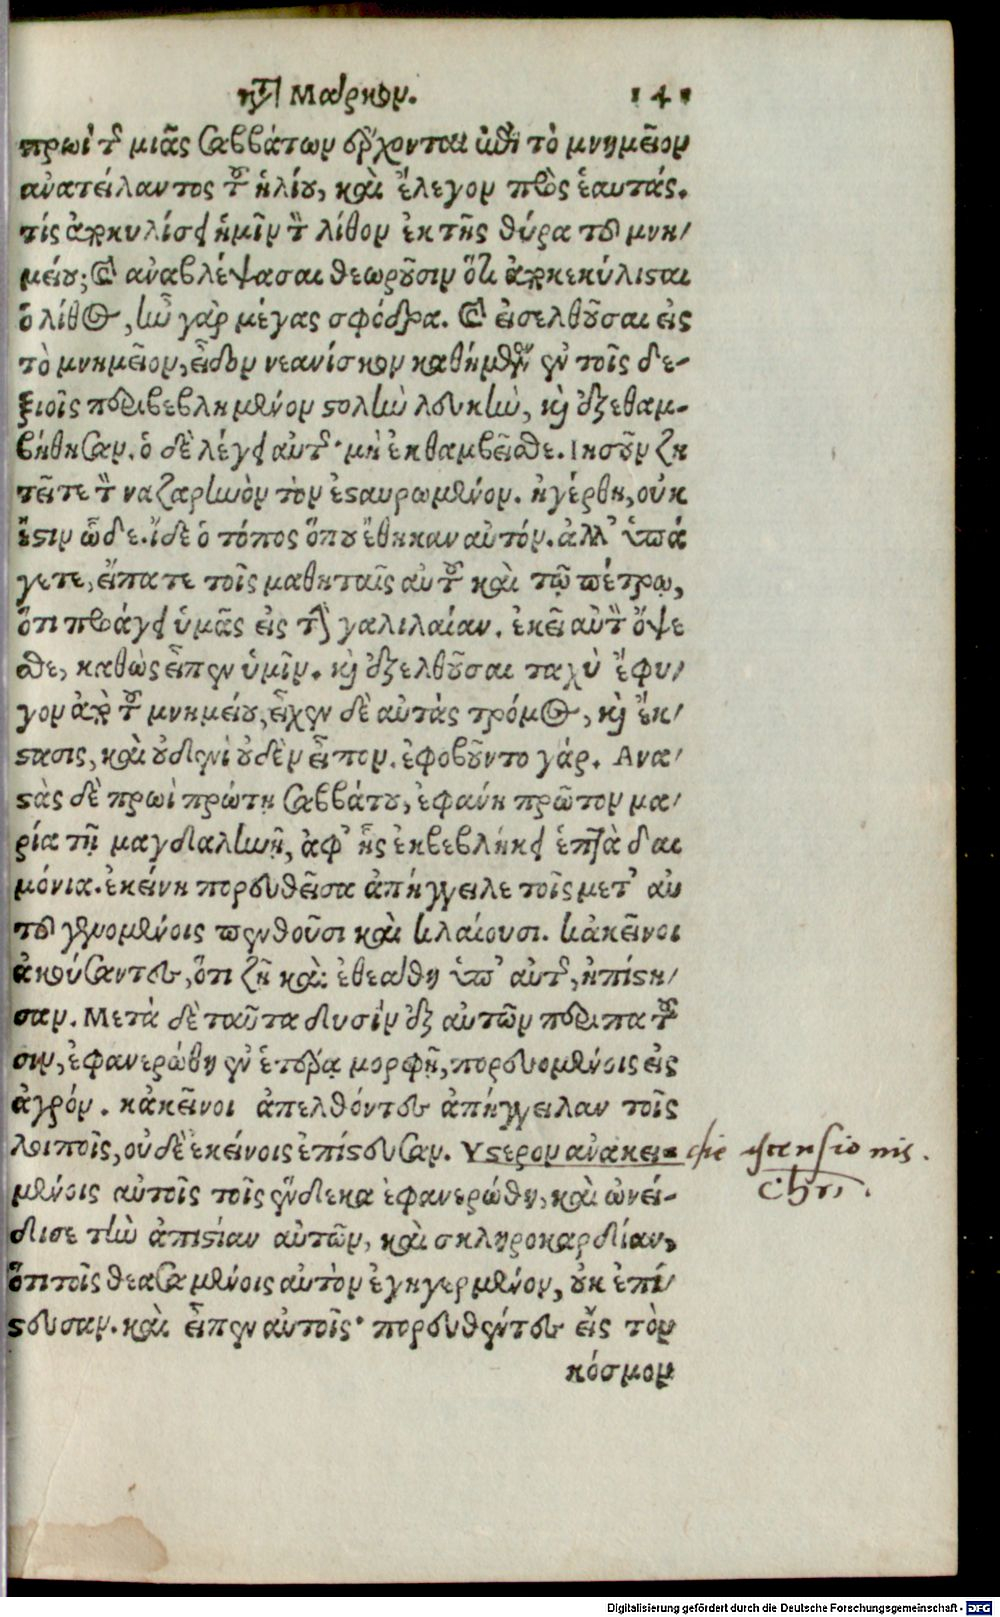 κατὰ Μάρκον. 141
πρωὶ τῆς μιᾶς σαββάτων ἔρχονται ἐπὶ τὸ μνημεῖον
ἀνατείλαντος τοῦ ἡλίου, καὶ ἔλεγον πρὸς ἑαυτάς.
τίς ἀποκυλίσει ἡμῖν τὸν λίθον ἐκ τῆς θύρα τοῦ μνη/
μείου; καὶ ἀναβλέψασαι θεωροῦσιν ὅτι ἀποκεκύλισαι
ὁ λίθος, ἦν γὰρ μέγας σφόδρα. καὶ εἰσελθοῦσαι εἰς
τὸ μνημεῖον, εἶδον νεανίσκον καθήμενον ἐν τοῖς δε-
ξιοῖς περιβεβλημένον στολὴν λευκὴν, καὶ ἐξεθαμ-
βήθησαν. ὁ δὲ λέγει αὐταῖς· μὴ ἐκθαμβεῖσθε. Ιησοῦν ζη
τεῖτε τὸν ναζαρηνὸν τὸν ἐσταυρωμένον. ἠγέρθη, οὐκ
ἔστιν ὧδε. ἴδε ὁ τόπος ὅπου ἔθηκαν αὐτόν. ἀλλ' ὑπά
γετε, εἴπατε τοῖς μαθηταῖς αὐτοῦ καὶ τῷ πέτρῳ,
ὅτι προάγει ὑμᾶς εἰς τὴν γαλιλαίαν. ἐκεῖ αὐτὸν ὄψε
σθε, καθὼς εἶπεν ὑμῖν. καὶ ἐξελθοῦσαι ταχὺ ἔφυ/
γον ἀπὸ τοῦ μνημείου, εἶχεν δὲ αὐτάς τρόμος, καὶ ἔκ/
στασις, καὶ οὐδενὶ οὐδὲν εἶπον. ἐφοβοῦντο γάρ. Ανα/
στὰς δὲ πρωὶ πρώτῃ σαββάτου, ἐφάνη πρῶτον μα/
ρία τῇ μαγδιαληνῇ, ἀφ' ἧς ἐκβεβλήκει ἑπτὰ δαι
μόνια. ἐκείνη πορευθεῖσα ἀπήγγειλε τοῖς μετ' αυ
τοῦ γενομένοις πενθοῦσι καὶ κλαίουσι. κἀκεῖνοι
ἀκούσαντες, ὅτι ζῇ καὶ ἐθεάθη ὑπ' αὐτῆς, ἠπίστη/
σαν. Μετὰ δὲ ταῦτα δυσὶν ἐξ αὐτῶν περιπατοῦ
σιν, ἐφανερώθη ἐν ἑτέρᾳ μορφῇ, πορευομένοις εἰς
ἀγρόν. κἀκεῖνοι ἀπελθόντες ἀπήγγειλαν τοῖς
λοιποῖς, οὐδὲ ἐκείνοις ἐπίστευσαν. Υστερον ἀνακει- die ascensionis.
μένοις αὐτοῖς τοῖς ἕνδεκα ἐφανερώθη, καὶ ὠνεί- Chri.
δισε τὴν ἀπιστίαν αὐτῶν, καὶ σκληροκαρδίαν,
ὅτι τοῖς θεασαμένοις αὐτὸν ἐγηγερμένον, οὐκ ἐπί/
στευσαν. καὶ εἶπεν αὐτοῖς· πορευθέντες εἰς τὸν
κόσμον
Digitalisierung gefördert durch die Deutsche Forschungsgemeinschaft - DFG